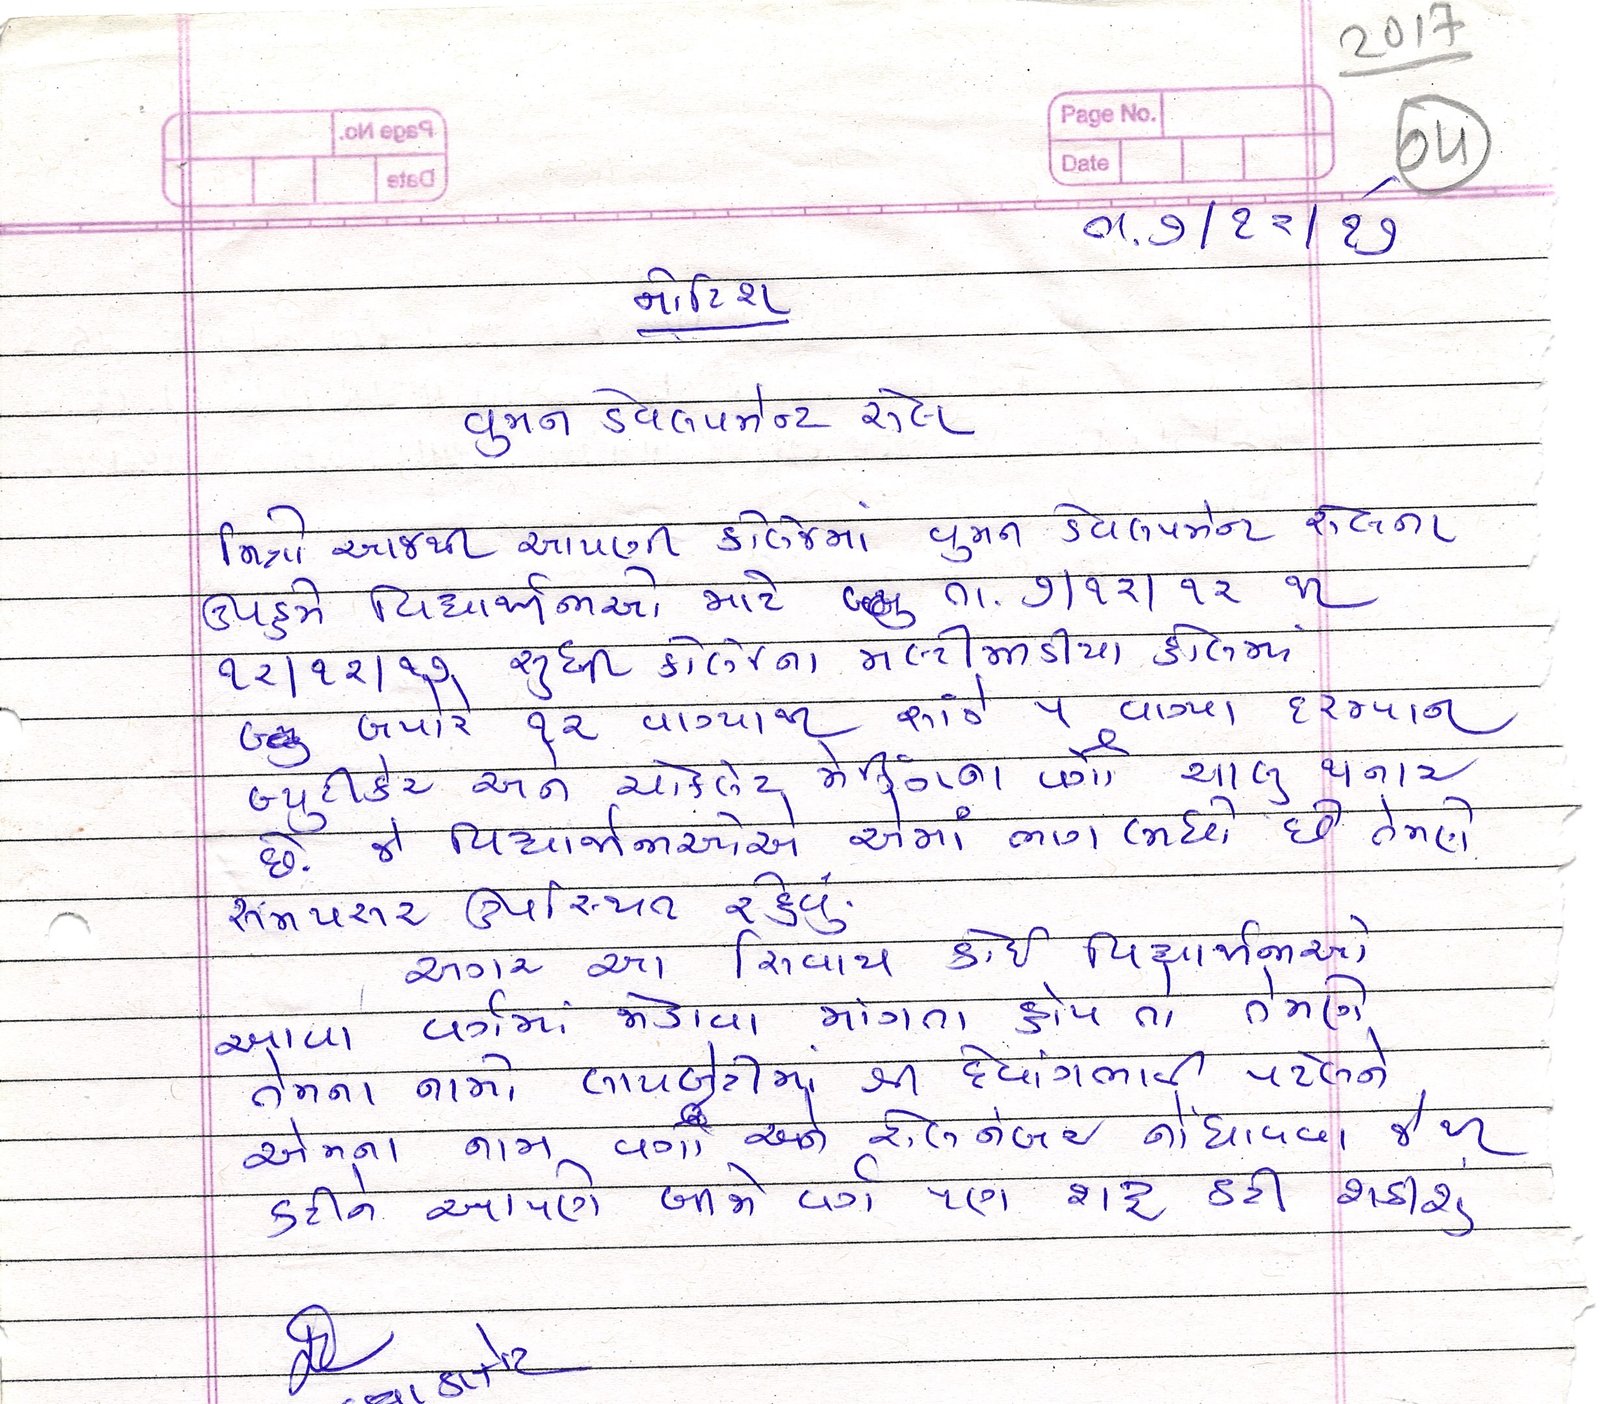 2017
Page No.
Date
૦૫
તા. ૭/૧૨/૧૭
નોટિશ
વુમન ડેવલપમેન્ટ સેલ
મિત્રો આજથી આપણી કોલેજમાં વુમન ડેવલપમેન્ટ સેલના
ઉપક્રમે વિદ્યાર્થીનીઓ માટે તા. ૭/૧૨/૧૨ થી
૧૨/૧૨/૧૭ સુધી કોલેજના મલ્ટીમીડીયા હોલમાં
બપોરે ૧૨ વાગ્યાથી સાંજે ૫ વાગ્યા દરમ્યાન
બ્યુટીકેર અને ચોકલેટ મેકીંગના વર્ગો ચાલુ થનાર
છે. જે વિદ્યાર્થીનીઓએ એમાં ભાગ લીધો છે તેમણે
સમયસર ઉપસ્થિત રહેવું.
અગર આ સિવાય કોઈ વિદ્યાર્થીનીઓ
આવા વર્ગમાં જોડાવા માંગતા હોય તો તેમણે
તેમના નામો લાયબ્રેરીમાં શ્રી દેવાંગભાઈ પટેલને
એમના નામ વર્ગો અને રોલ નંબર નોંધાવવા જેથી
કરીને આપણે બીજો વર્ગ પણ શરૂ કરી શકીશું